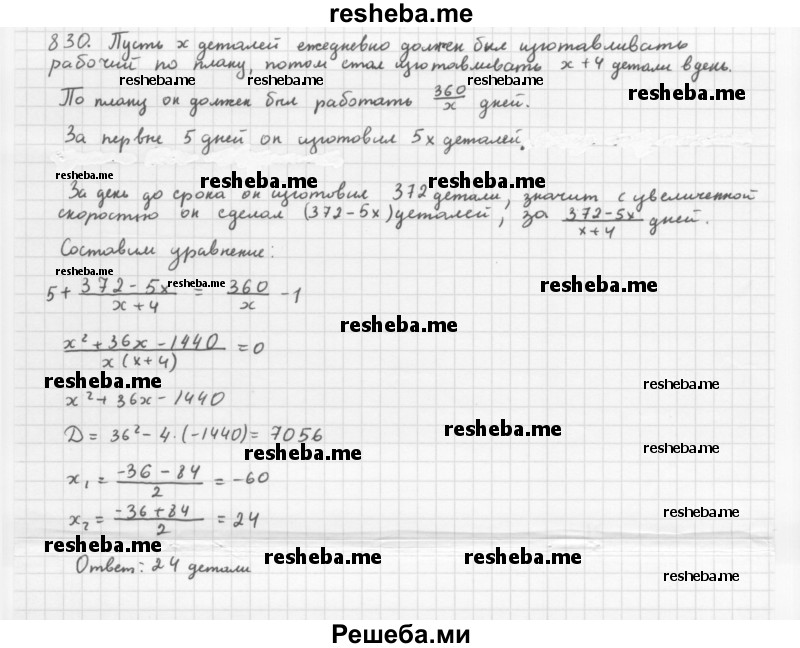 resheba.me
830. Пусть x деталей ежедневно должен был изготавливать
рабочий по плану, потом стал изготавливать x+4 детали в день.
resheba.me resheba.me resheba.me
По плану он должен был работать 360/x дней.
За первые 5 дней он изготовил 5x деталей.
resheba.me resheba.me resheba.me
За день до срока он изготовил 372 детали, значит с увеличенной
скоростью он сделал (372-5x) деталей, за (372-5x)/(x+4) дней.
Составим уравнение:
resheba.me resheba.me resheba.me
5 + (372-5x)/(x+4) = 360/x - 1
resheba.me
(x²+36x-1440)/(x(x+4)) = 0
resheba.me resheba.me
x²+36x-1440
D = 36²-4·(-1440) = 7056
resheba.me resheba.me resheba.me
x₁ = (-36-84)/2 = -60
x₂ = (-36+84)/2 = 24
resheba.me
resheba.me resheba.me resheba.me
Ответ: 24 детали
resheba.me
Решеба.ми